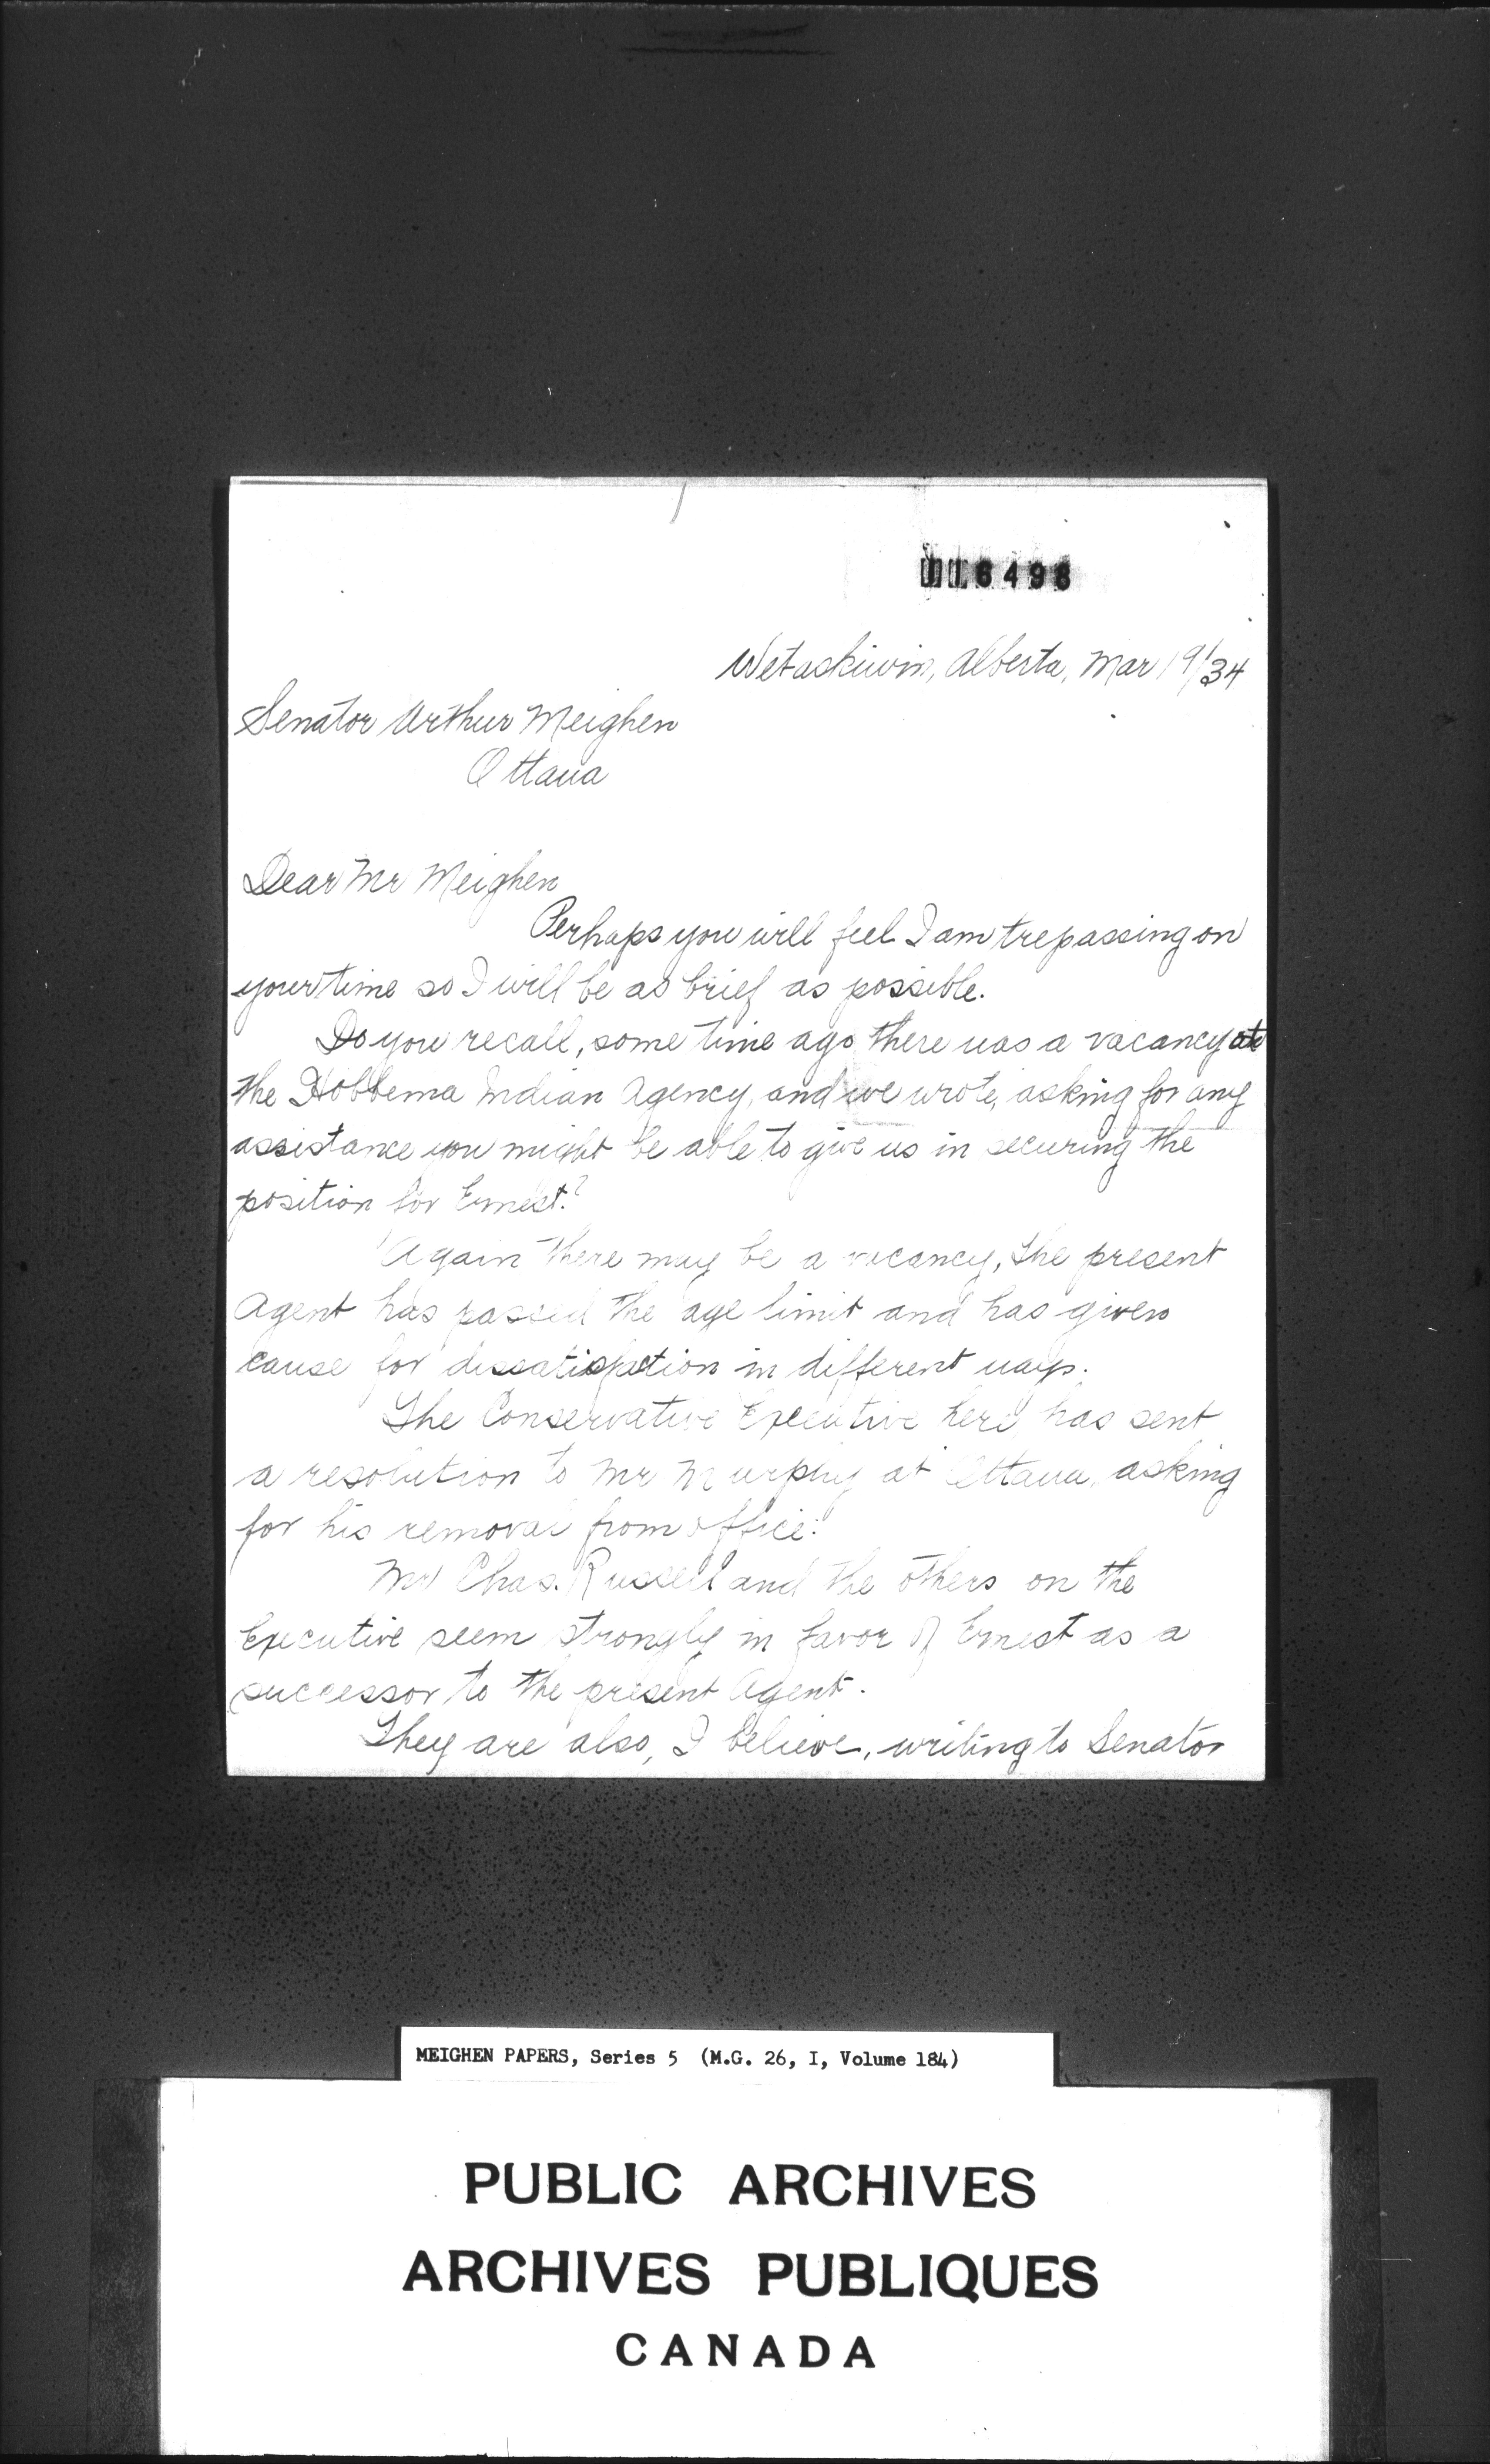 116496
Wetaskiwin, Alberta, Mar 19/34
Senator Arthur Meighen
Ottawa
Dear Mr Meighen
Perhaps you will feel I am trepassing on
your time so I will be as brief as possible.
Do you recall, some time ago there was a vacancy at
the Hobbema Indian Agency, and we wrote, asking for any
assistance you might be able to give us in securing the
position for Ernest?
Again there may be a vacancy, the present
Agent has passed the age limit and has given
cause for dissatisfaction in different ways.
The Conservative Executive here has sent
a resolution to Mr Murphy at Ottawa, asking
for his removal from office.
Mr Chas. Russell and the others on the
Executive seem strongly in favor of Ernest as a
successor to the present Agent.
They are also, I believe, writing to Senator
MEIGHEN PAPERS, Series 5 (M.G. 26, I, Volume 184)
PUBLIC ARCHIVES
ARCHIVES PUBLIQUES
CANADA